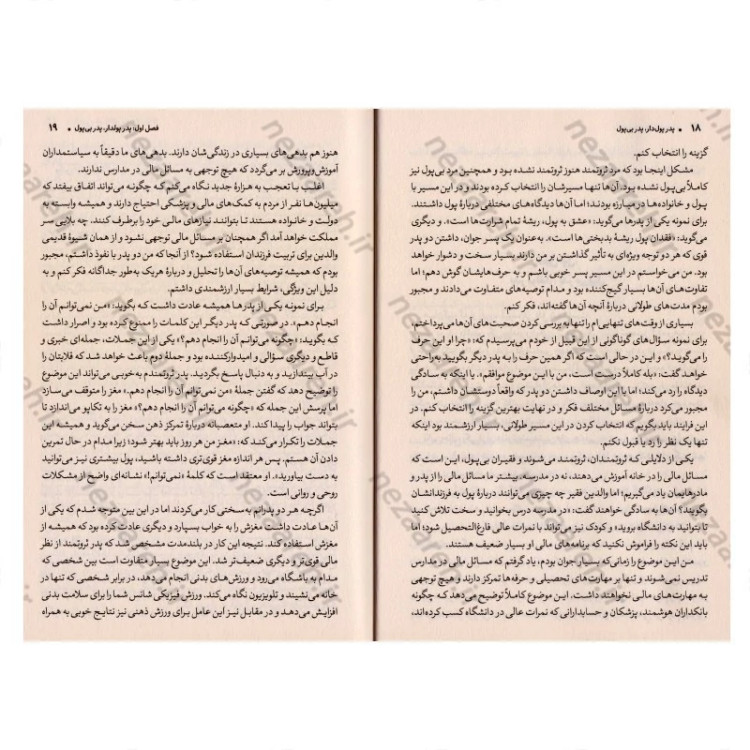 ۱۸ • پدر پول‌دار، پدر بی‌پول
گزینه را انتخاب کنم.
مشکل اینجا بود که مرد ثروتمند هنوز ثروتمند نشده بود و همچنین مرد بی‌پول نیز
کاملاً بی‌پول نشده بود. آن‌ها تنها مسیرشان را انتخاب کرده بودند و در این مسیر با
پول و خانواده‌ها در مبارزه بودند؛ اما آن‌ها دیدگاه‌های مختلفی دربارهٔ پول داشتند.
برای نمونه یکی از پدرها می‌گوید: «عشق به پول، ریشهٔ تمام شرارت‌ها است». و دیگری
می‌گوید: «فقدان پول ریشهٔ بدبختی‌ها است». به‌عنوان یک پسر جوان، داشتن دو پدر
قوی که هر دو توجه ویژه‌ای به تأثیر گذاشتن بر من دارند بسیار سخت و دشوار خواهد
بود. من می‌خواستم در این مسیر پسر خوبی باشم و به حرف‌هایشان گوش دهم؛ اما
تفاوت‌های آن‌ها بسیار گیج‌کننده بود و مدام توصیه‌های متفاوت می‌دادند و مجبور
بودم مدت‌های طولانی دربارهٔ آنچه آن‌ها گفته‌اند، فکر کنم.
بسیاری از وقت‌های تنهایی‌ام را تنها به بررسی کردن صحبت‌های آن‌ها می‌پرداختم،
برای نمونه سؤال‌های گوناگونی از این قبیل از خودم می‌پرسیدم که: «چرا او این حرف
را می‌گوید؟» و این در حالی است که اگر همین حرف را به پدر دیگر بگویید به‌راحتی
خواهد گفت: «بله کاملاً درست است، من با این موضوع موافقم». یا اینکه به سادگی
دیدگاه را رد می‌کند؛ اما با این اوصاف داشتن دو پدر که واقعاً دوستشان داشتم، من را
مجبور می‌کرد دربارهٔ مسائل مختلف فکر و در نهایت بهترین گزینه را انتخاب کنم. در
این فرایند باید بگویم که انتخاب کردن در این مسیر طولانی، بسیار ارزشمند بود اینکه
تنها یک نظر را رد یا قبول نکنم.
یکی از دلایلی که ثروتمندان، ثروتمند می‌شوند و فقیران بی‌پول، این است که
مسائل مالی را در خانه آموزش می‌دهند، نه در مدرسه. بیشتر ما مسائل مالی را از پدر و
مادرهایمان یاد می‌گیریم؛ اما والدین فقیر چه چیزی می‌توانند دربارهٔ پول به فرزندانشان
بگویند؟ آن‌ها به سادگی خواهند گفت: «در مدرسه درس بخوانید و سخت تلاش کنید
تا بتوانید به دانشگاه بروید» و کودک نیز می‌تواند با نمرات عالی فارغ‌التحصیل شود؛ اما
باید این نکته را فراموش نکنید که برنامه‌های مالی او بسیار ضعیف هستند.
من این موضوع را زمانی که بسیار جوان بودم، یاد گرفتم که مسائل مالی در مدارس
تدریس نمی‌شوند و تنها بر مهارت‌های تحصیلی و حرفه‌ها تمرکز دارند و هیچ توجهی
به مهارت‌های مالی نخواهند داشت. این موضوع کاملاً توضیح می‌دهد که چگونه
بانکداران هوشمند، پزشکان و حسابدارانی که نمرات عالی در دانشگاه کسب کرده‌اند،
فصل اول: پدر پولدار، پدر بی‌پول • ۱۹
هنوز هم بدهی‌های بسیاری در زندگی‌شان دارند. بدهی‌های ما دقیقاً به سیاستمداران
آموزش‌وپرورش بر می‌گردد که هیچ توجهی به مسائل مالی در مدارس ندارند.
اغلب با تعجب به هزارهٔ جدید نگاه می‌کنم که چگونه می‌تواند اتفاق بیفتد که
میلیون‌ها نفر از مردم به کمک‌های مالی و پزشکی احتیاج دارند و همیشه وابسته به
دولت و خانواده هستند تا بتوانند نیازهای مالی خود را برطرف کنند. چه بلایی سر
مملکت خواهد آمد اگر همچنان بر مسائل مالی توجهی نشود و از همان شیوهٔ قدیمی
والدین برای تربیت فرزندان استفاده شود؟ از آنجا که من دو پدر با نفوذ داشتم، مجبور
بودم که همیشه توصیه‌های آن‌ها را تحلیل و دربارهٔ هریک به‌طور جداگانه فکر کنم و به
دلیل این ویژگی، شرایط بسیار ارزشمندی داشتم.
برای نمونه یکی از پدرها همیشه عادت داشت که بگوید: «من نمی‌توانم آن را
انجام دهم». در صورتی که پدر دیگر این کلمات را ممنوع کرده بود و اصرار داشت
که بگوید: «چگونه می‌توانم آن را انجام دهم؟» یکی از این جملات، جمله‌ای خبری و
قاطع و دیگری سؤالی و امیدوارکننده بود و جملهٔ دوم باعث خواهد شد که قلابتان را
در آب بیندازید و به دنبال پاسخ بگردید. پدر ثروتمندم به‌خوبی می‌تواند این موضوع
را توضیح دهد که گفتن جملهٔ «من نمی‌توانم آن را انجام دهم.» مغز را متوقف می‌سازد
اما پرسش این جمله که «چگونه می‌توانم آن را انجام دهم؟» مغز را به تکاپو می‌اندازد تا
بتواند جواب را پیدا کند. او متعصبانه دربارهٔ تمرکز ذهن سخن می‌گوید و همیشه این
جملات را تکرار می‌کند که: «مغز من هر روز باید بهتر شود؛ زیرا مدام در حال تمرین
دادن آن هستم. پس هر اندازه مغز قوی‌تری داشته باشید، پول بیشتری نیز می‌توانید
به دست بیاورید». او معتقد است که کلمهٔ «نمی‌توانم!» نشانه‌ای واضح از مشکلات
روحی و روانی است.
اگرچه هر دو پدرانم به‌سختی کار می‌کردند اما در این بین متوجه شدم که یکی از
آن‌ها عادت داشت مغزش را به خواب بسپارد و دیگری عادت کرده بود که همیشه از
مغزش استفاده کند. نتیجه این کار در بلندمدت مشخص شد که پدر ثروتمند از نظر
مالی قوی‌تر و دیگری ضعیف‌تر شد. این موضوع بسیار متفاوت است بین شخصی که
مدام به باشگاه می‌رود و ورزش‌های بدنی انجام می‌دهد، در برابر شخصی که تنها در
خانه می‌نشیند و تلویزیون نگاه می‌کند. ورزش فیزیکی شانس شما را برای سلامت بدنی
افزایش می‌دهد و در مقابل نیز این عامل برای ورزش ذهنی نیز نتایج خوبی به همراه
nezaareh.ir